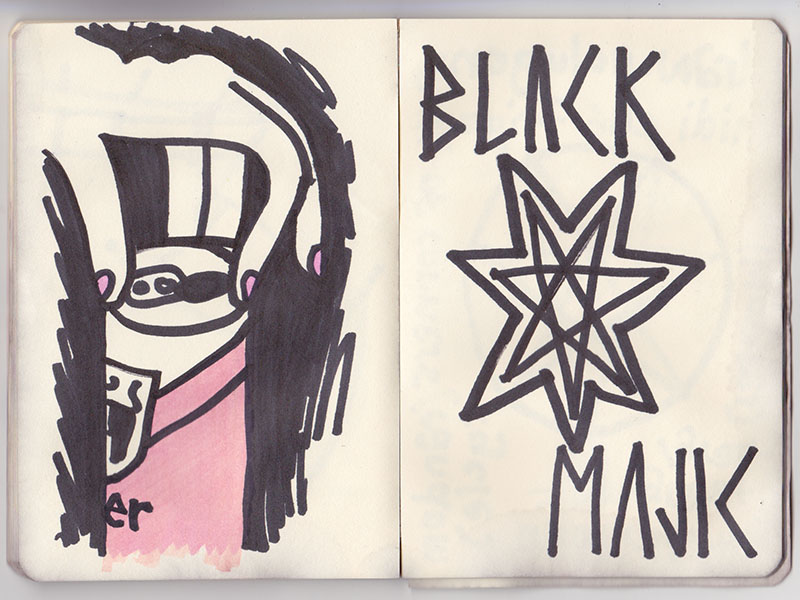 er
BLACK
MAJIC